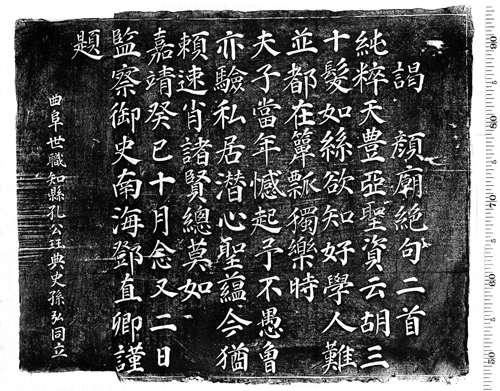 謁 顏廟絕句二首
純粹天豊亞聖資云胡三
十髮如絲欲知好學人難
並都在簞瓢獨樂時
夫子當年憾起予不愚曾
亦驗私居潜心聖蘊今猶
頼速肖諸賢總莫如
嘉靖癸巳十月念又二日
監察御史南海鄧直卿謹
題
曲阜世職知縣孔公玨典史孫弘同立